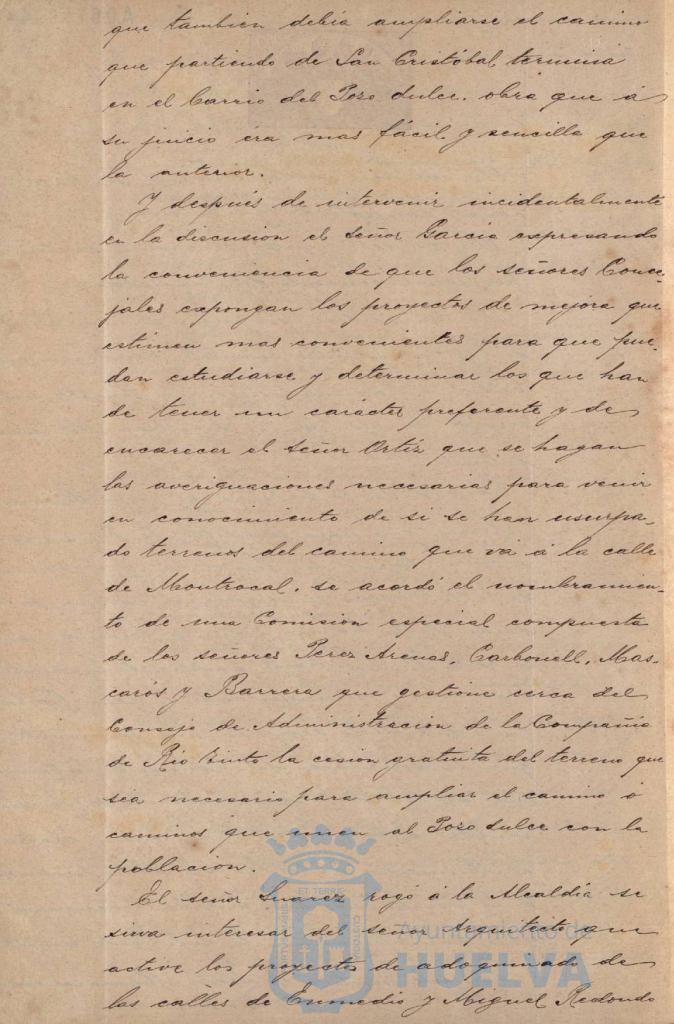 que tambien debía ampliarse el camino
que partiendo de San Cristóbal termina
en el barrio del Pozo dulce. obra que á
su juicio era mas fácil y sencilla que
la anterior.
Y después de intervenir incidentalmente
en la discusion el señor Garcia expresando
la conveniencia de que los señores Conce-
jales expongan los proyectos de mejora que
estimen mas convenientes para que pue-
dan estudiarse y determinar los que han
de tener un carácter preferente y de
encarecer el señor Ortiz que se hagan
las averiguaciones necesarias para venir
en conocimiento de si se han usurpa-
do terrenos del camino que vá á la calle
de Montrocal. se acordó el nombramien-
to de una Comision especial compuesta
de los señores Perez Arenas, Carbonell, Mas-
carós y Barrera que gestione cerca del
Consejo de Administracion de la Compañia
de Rio Tinto la cesion gratuita del terreno que
sea necesario para ampliar el camino ó
caminos que unen al Pozo dulce con la
poblacion.
El señor Suarez rogó á la Alcaldía se
sirva interesar del señor Arquitecto que
active los proyectos de adoquinado de
las calles de Enmedio y Miguel Redondo
Ayuntamiento de
HUELVA